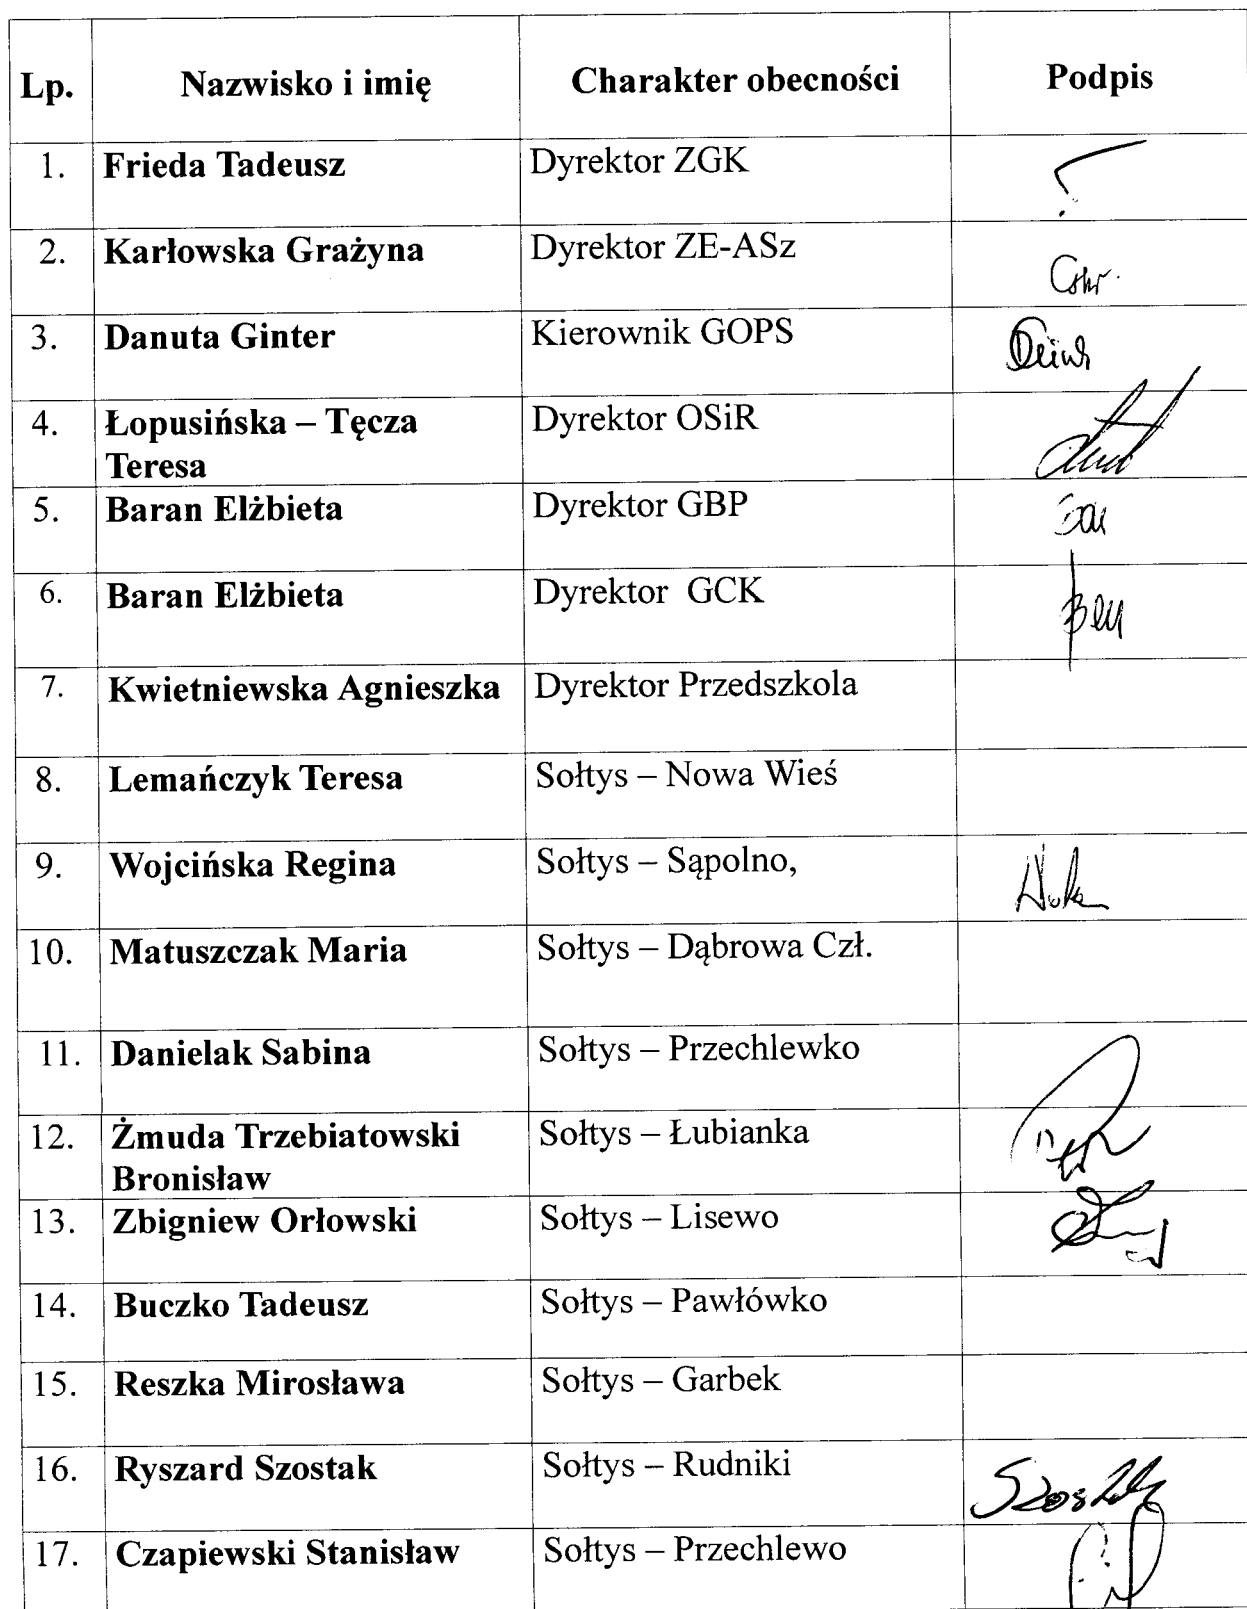 Lp. Nazwisko i imię Charakter obecności Podpis
1. Frieda Tadeusz Dyrektor ZGK
2. Karłowska Grażyna Dyrektor ZE-ASz
3. Danuta Ginter Kierownik GOPS
4. Łopusińska – Tęcza Dyrektor OSiR
Teresa
5. Baran Elżbieta Dyrektor GBP
6. Baran Elżbieta Dyrektor GCK
7. Kwietniewska Agnieszka Dyrektor Przedszkola
8. Lemańczyk Teresa Sołtys – Nowa Wieś
9. Wojcińska Regina Sołtys – Sąpolno,
10. Matuszczak Maria Sołtys – Dąbrowa Czł.
11. Danielak Sabina Sołtys – Przechlewko
12. Żmuda Trzebiatowski Sołtys – Łubianka
Bronisław
13. Zbigniew Orłowski Sołtys – Lisewo
14. Buczko Tadeusz Sołtys – Pawłówko
15. Reszka Mirosława Sołtys – Garbek
16. Ryszard Szostak Sołtys – Rudniki
17. Czapiewski Stanisław Sołtys – Przechlewo